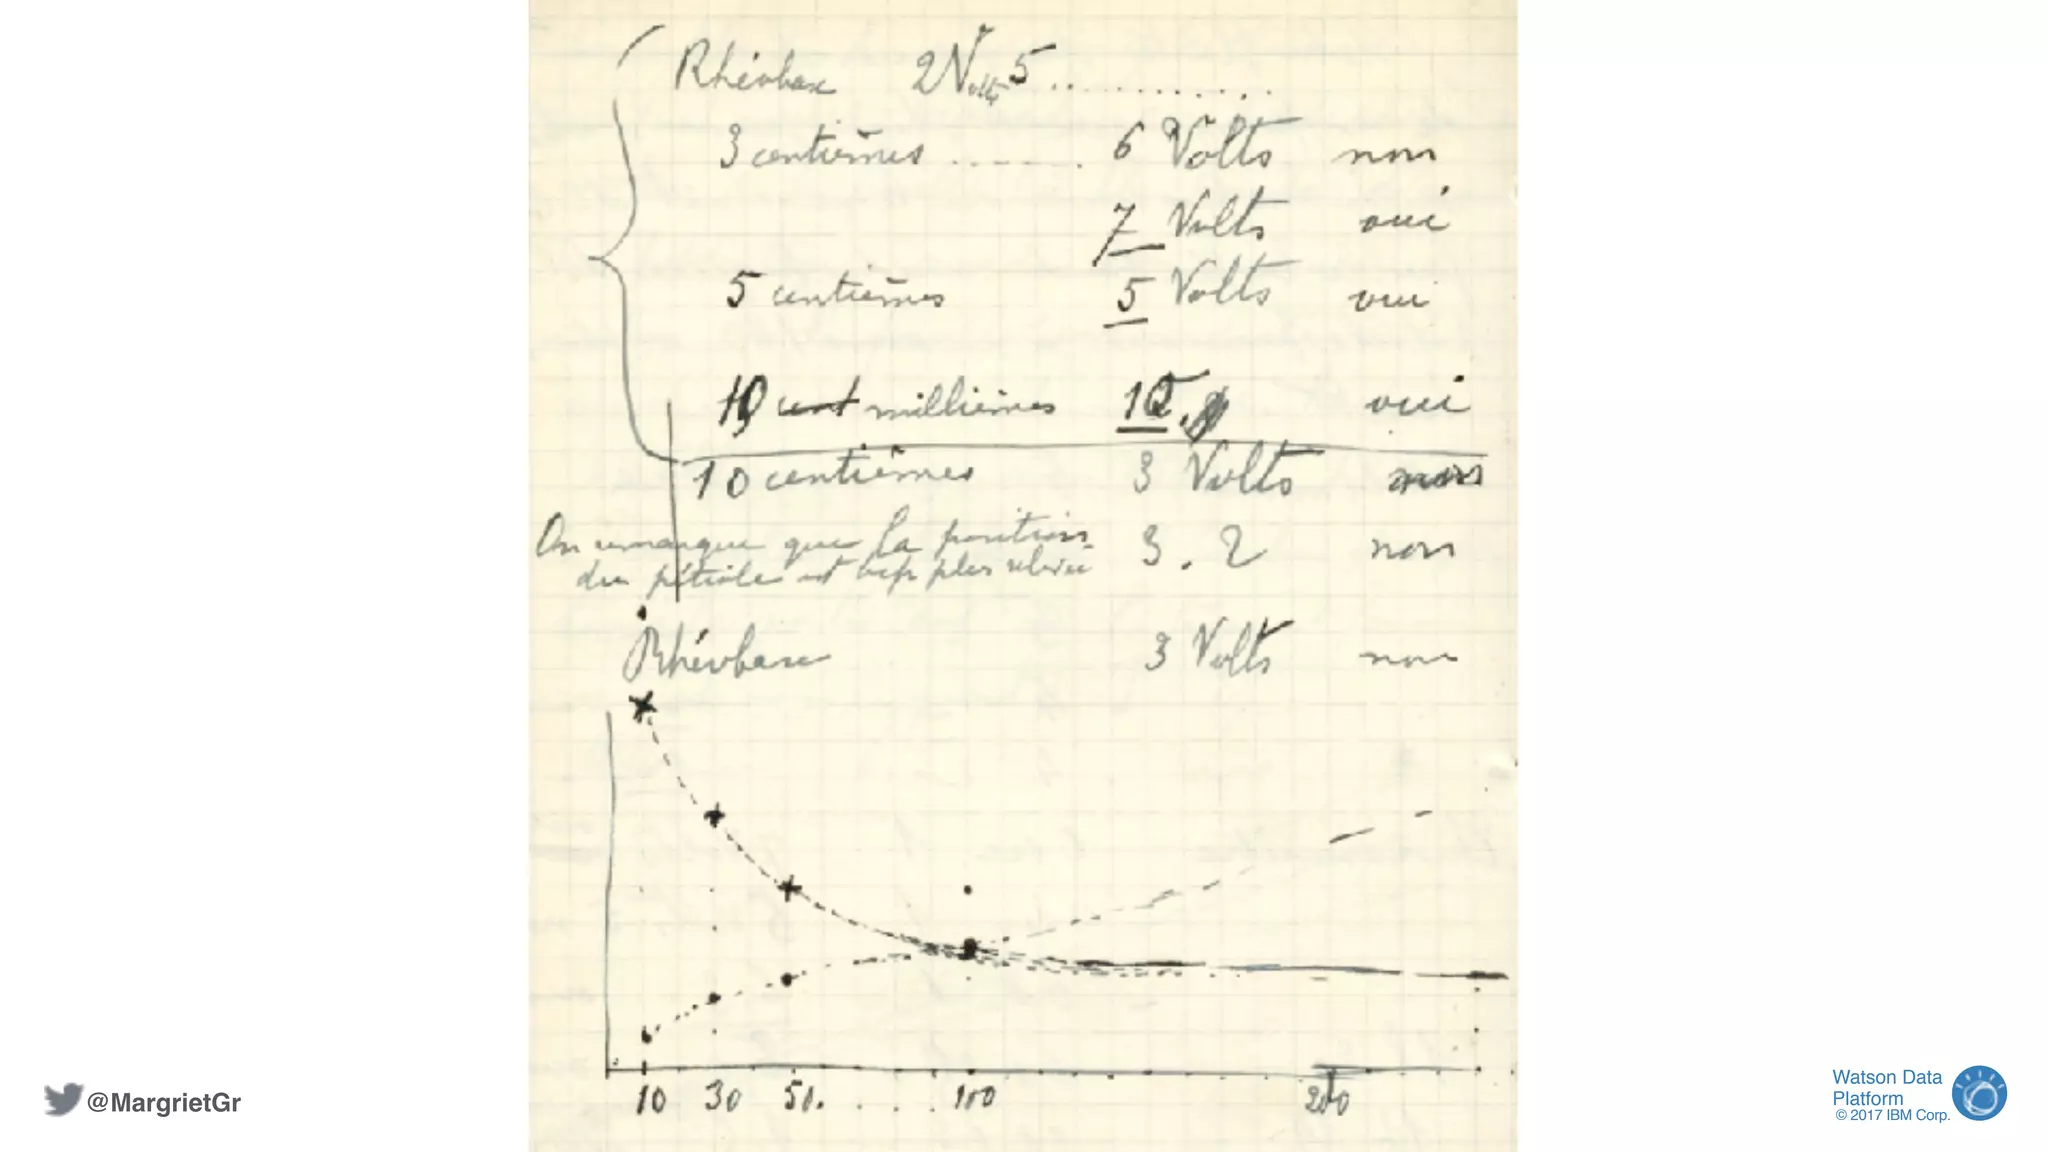 Rhéobase 2Volts5 ............
3 centièmes ....... 6 Volts non
7 Volts oui
5 centièmes 5 Volts oui
10 cent millièmes oui
10 centièmes 3 Volts non
On remarque que la position 3.2 non
du pétiole est plus
Rhéobase 3 Volts non
10 30 50. . . . . 100 200
@MargrietGr
Watson Data
Platform
© 2017 IBM Corp.